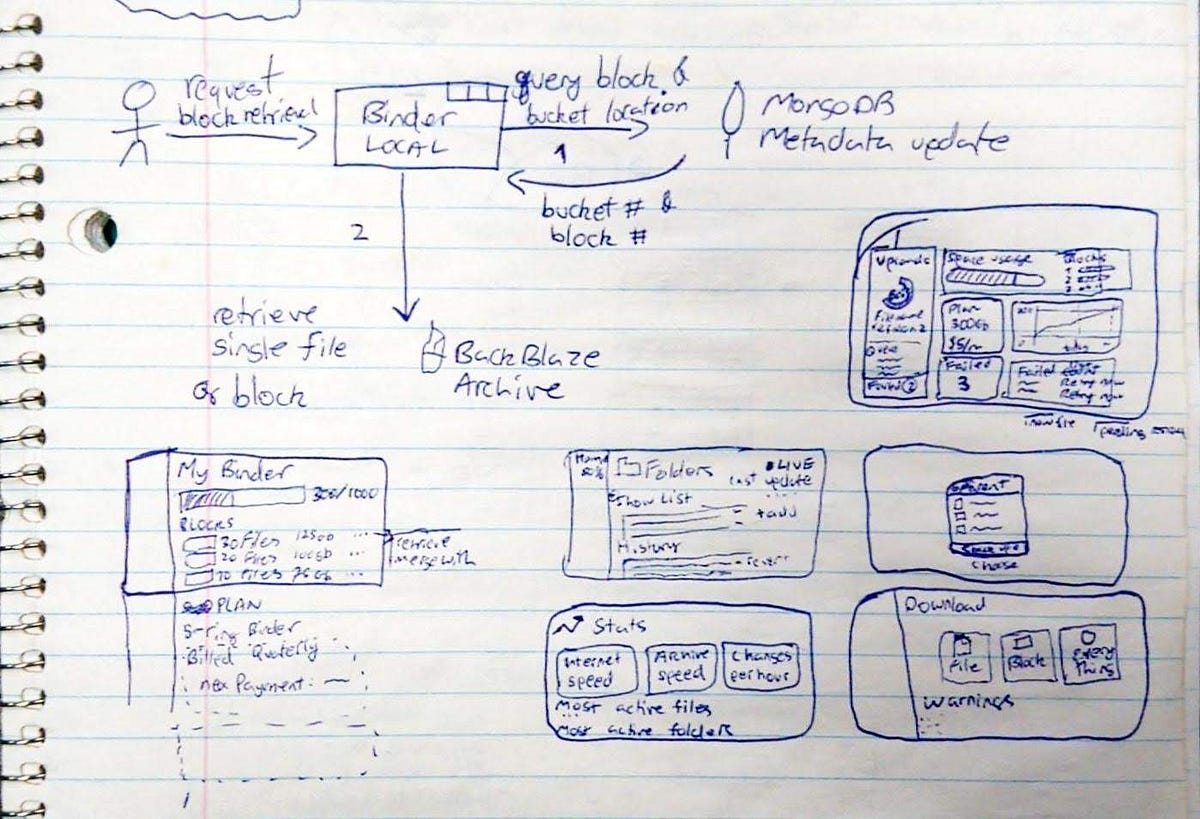 request
block retrieval
Binder
LOCAL
query block &
bucket location
1
MongoDB
Metadata update
bucket # &
block #
2
retrieve
single file
or block
BackBlaze
Archive
Uploads
Space usage
Blocks
1
2
3
File name
Plan
300Gb
$5/m
Failed
3
Failed
Retry now
Retry now
Failed 2
new file
My Binder
300/1000
BLOCKS
30 Files 125Gb ...
20 Files 100Gb ...
10 Files 75Gb ...
retrieve
merge with
PLAN
5-ring Binder
Billed Quaterly
nex Payment:
Home
Folders
LIVE
Last update
Show List
+ add
History
revert
Parent
chose
Stats
Internet
speed
Archive
speed
Changes
per hour
Most active files
Most active folders
Download
File
Block
Every
thing
Warnings